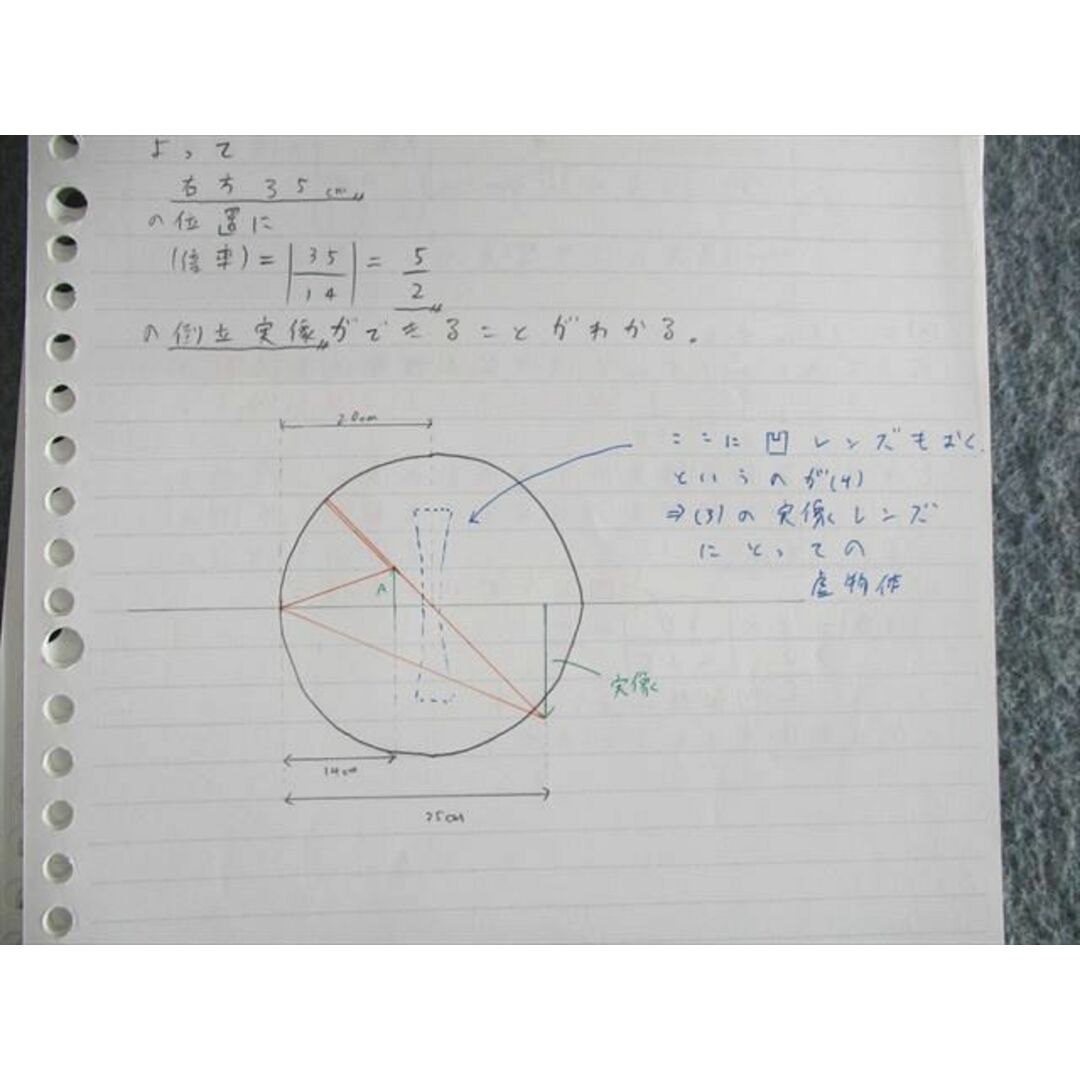 よって
右方 35cm
の位置に
(倍率) = |35/14| = 5/2
の倒立実像ができることがわかる。
20cm
ここに凹レンズもおく
というのが(4)
⇒(3)の実像レンズ
A
にとっての
虚物体
実像
14cm
35cm